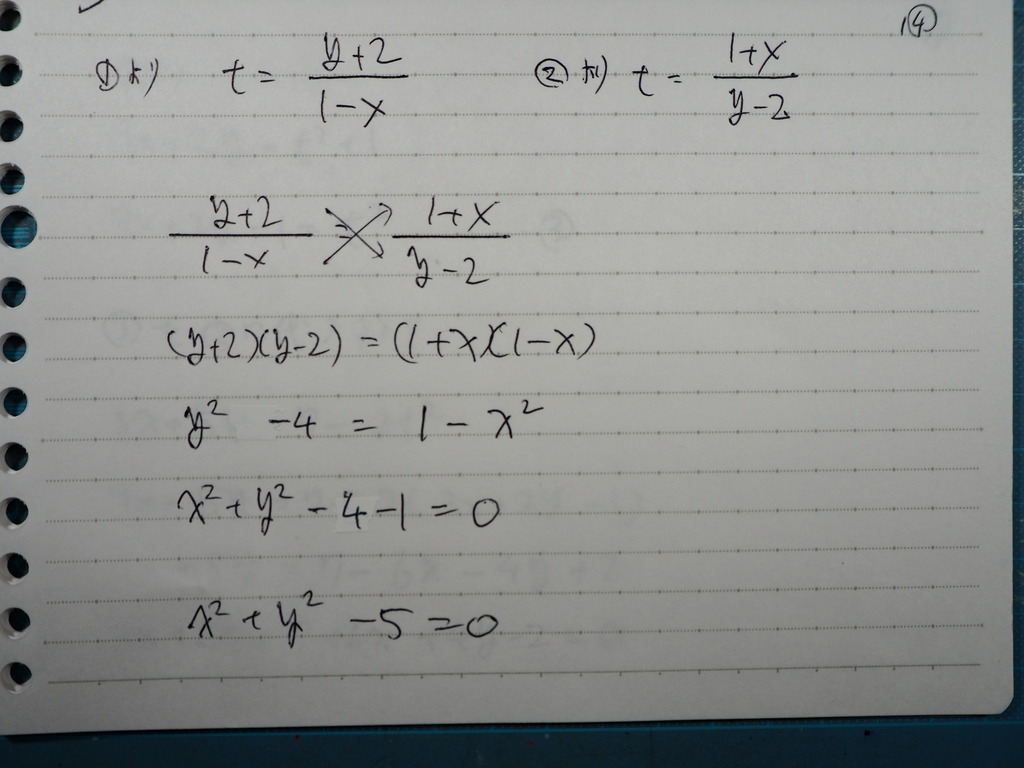 ④
①より t = (y+2)/(1-x) ②より t = (1+x)/(y-2)
(y+2)/(1-x) = (1+x)/(y-2)
(y+2)(y-2) = (1+x)(1-x)
y² -4 = 1 - x²
x² + y² - 4 - 1 = 0
x² + y² - 5 = 0